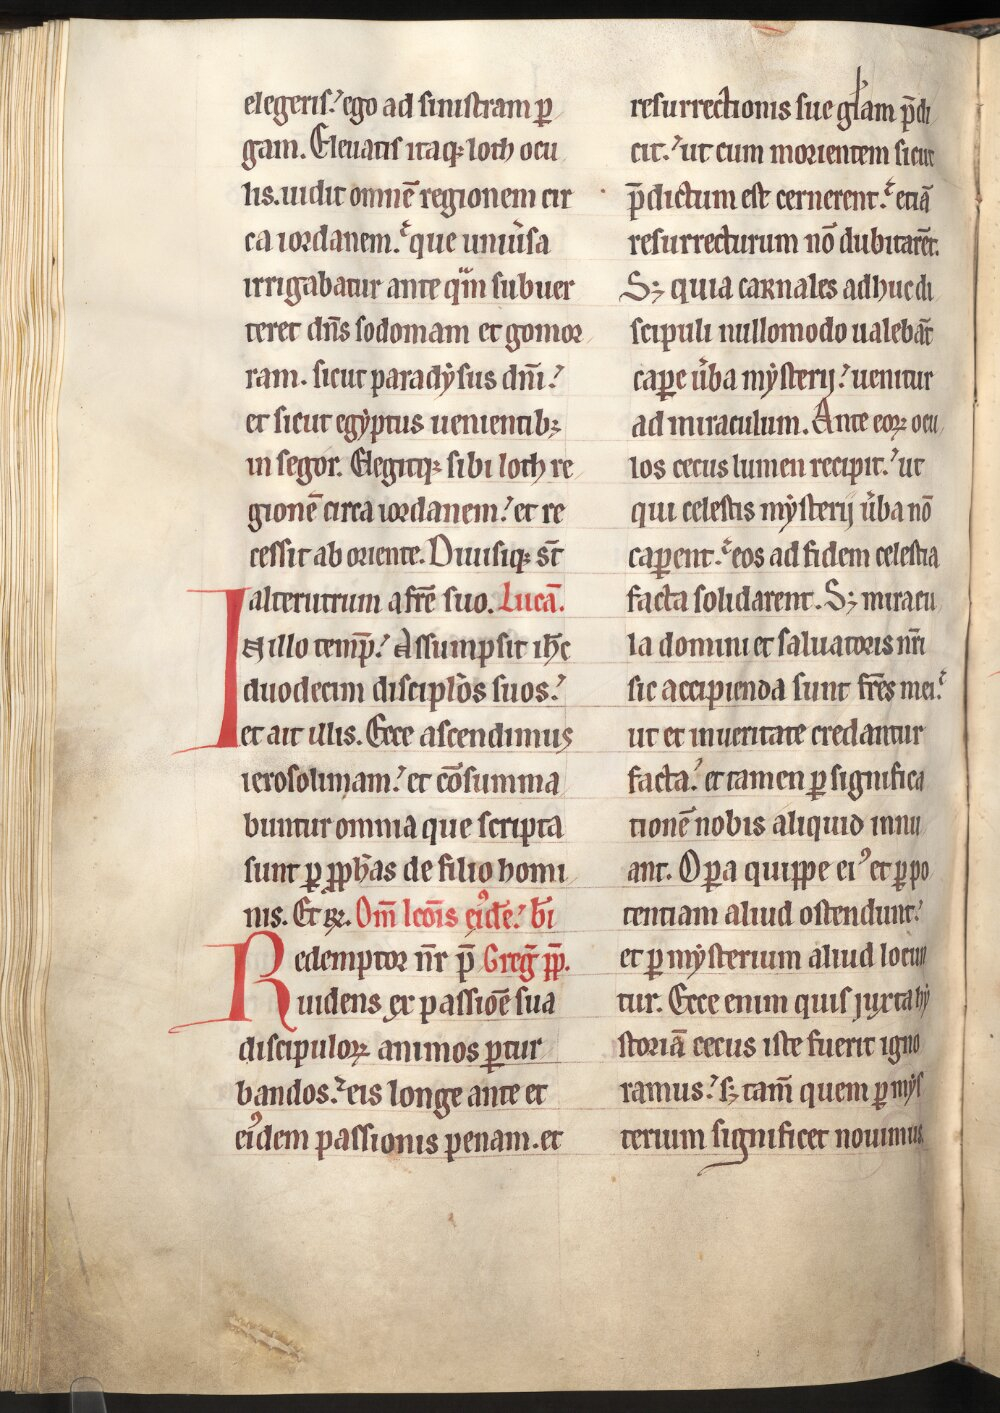 elegeris.ego ad sinistram p̲
gam. Eleuatis itaq; loth ocu
lis.uidit omnē regionem cir
ca iordanem. que uniu̾sa
irrigabatur ante qᵃm subuer
teret dn̄s sodomam et gomor
ram. sicut paradẏsus dn̄i.
et sicut egẏptus uenientib;
in segor. Elegitq; sibi loth re
gionē circa iordanem. et re
cessit ab oriente. Diuisiq; st̄
alterutrum a fr̄e suo. Lucā.
In illo temp̄. Assumpsit ih̄c
duodecim discipl̄os suos.
et ait illis. Ecce ascendimus
ierosolimam. et cōsumma
buntur omnia que scripta
sunt p̲ pph̄as de filio homi
nis. Et rł. Om̄ lcōis eiꝰdē. bī
Redemptor nr̄ p̄ Greḡ pp̄.
uidens ex passiōe sua
discipuloꝝ animos p̲tur
bandos. eis longe ante et
eiꝰdem passionis penam.et
resurrectionis sue gl̄am p̄di
cit. ut cum morientem sicut
p̄dictum est cernerent. etiā
resurrecturum nō dubitarēt.
S; quia carnales adhuc di
scipuli nullomodo ualebāt
cap̲e u̾ba mẏsterij. uenitur
ad miraculum. Ante eoꝝ ocu
los cecus lumen recipit. ut
qui celestis mẏsterij u̾ba nō
cap̲ent. eos ad fidem celestia
facta solidarent. S; miracu
la domini et saluatoris nr̄i
sic accipienda sunt fr̄es mei.
ut et in ueritate credantur
facta. et tamen p̲ significa
tionē nobis aliquid innu
ant. Op̲a quippe eiꝰ et p̲ po
tentiam aliud ostendunt.
et p̲ mẏsterium aliud locun
tur. Ecce enim quis juxta hẏ
storiā cecus iste fuerit igno
ramus. s; tam̄ quem p̲ mẏs
terium significet nouimus